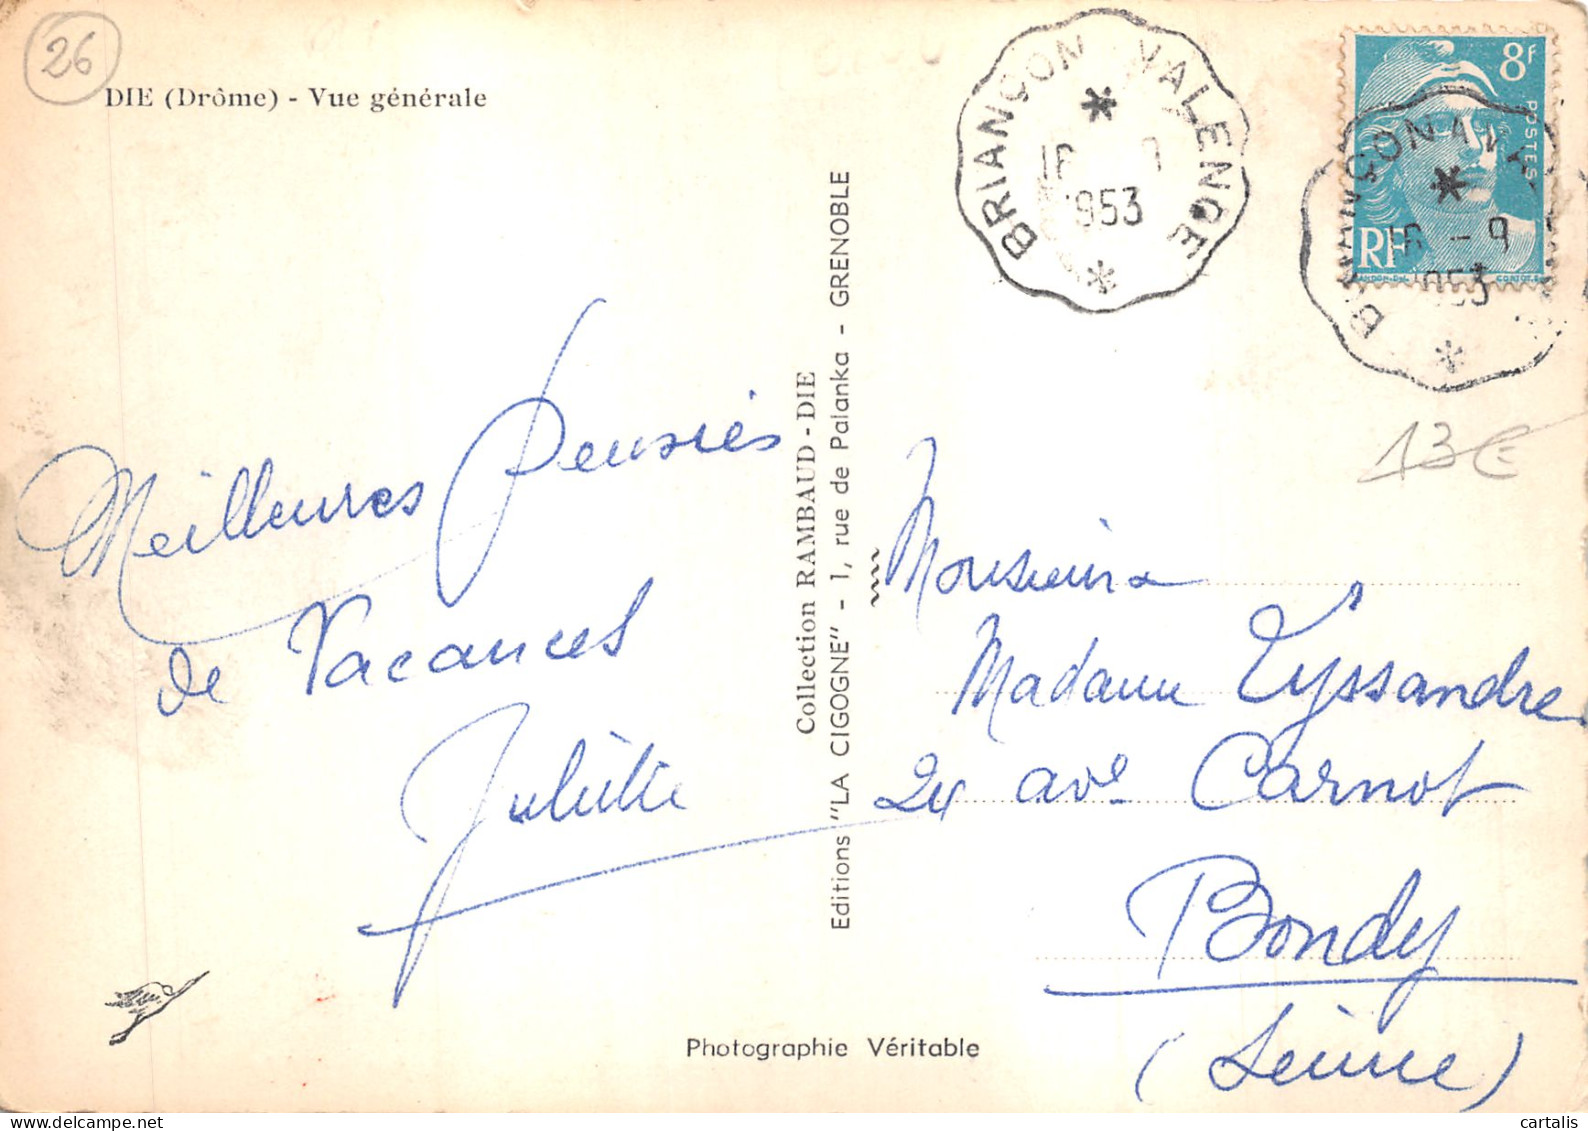 26
DIE (Drôme) - Vue générale
Meilleures Pensées
de Vacances
Juliette
Photographie Véritable
Collection RAMBAUD - DIE
Editions "LA CIGOGNE" - 1, rue de Palanka - GRENOBLE
BRIANÇON VALENCE
1953
8F
POSTES
RF
BRIANÇON
16 - 9
1953
13€
Monsieur
Madame Eyssandre
24 ave Carnot
Bondy
(Seine)
cartalis